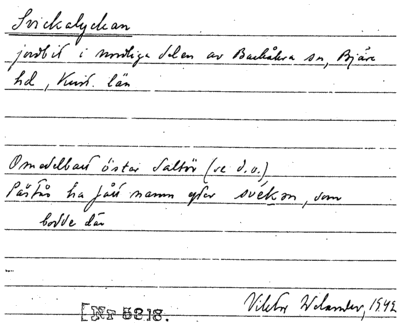 Svickalyckan
jordbit i nordliga delen av Barkåkra sn, Bjäre
hd, Krist. län
Omedelbart öster Saltör (se d.o.)
Påstås ha fått namn efter svékɔn, som
bodde där
[Nr 5318.
Viktor Welander, 1942